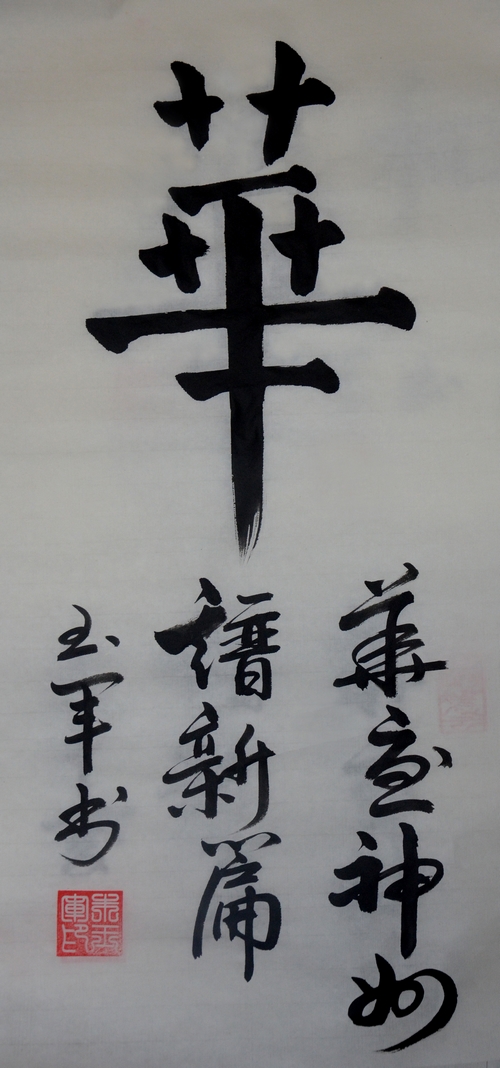 華
華夏神州
譜新篇
玉军书